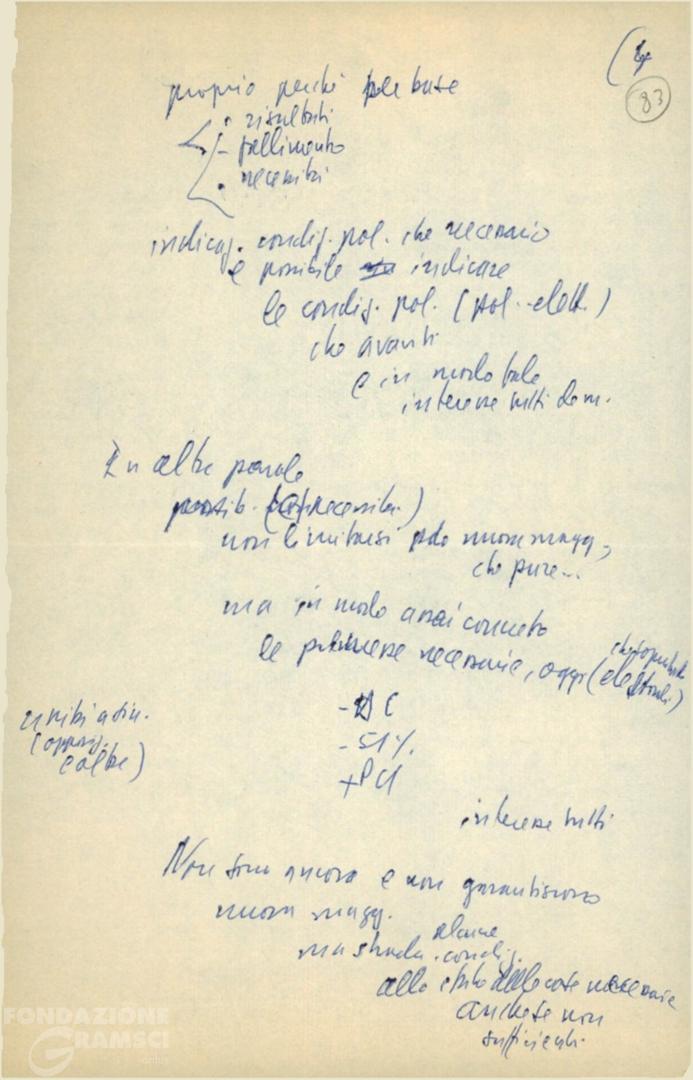 (4
83
proprio perché base
• risultati
- fallimento
• necessità
indicaz. condiz. pol. che necessario
e possibile indicare
le condiz. pol. (pol.-elett.)
che avanti
e in modo tale
interesse tutti dem.
In altre parole
possib. (e necessità)
non limitarsi nuova magg.,
che pure...
ma in modo assai concreto
le premesse necessarie, oggi (elettorali)
- DC
- 51%
+ PCI
unità a sin.
(opposiz.
e altre)
interesse tutti
Non sono ancora e non garantiscono
nuova magg.
ma strada alcune condiz.
allo stato delle cose necessarie
anche se non
sufficienti.
FONDAZIONE
GRAMSCI
onlus